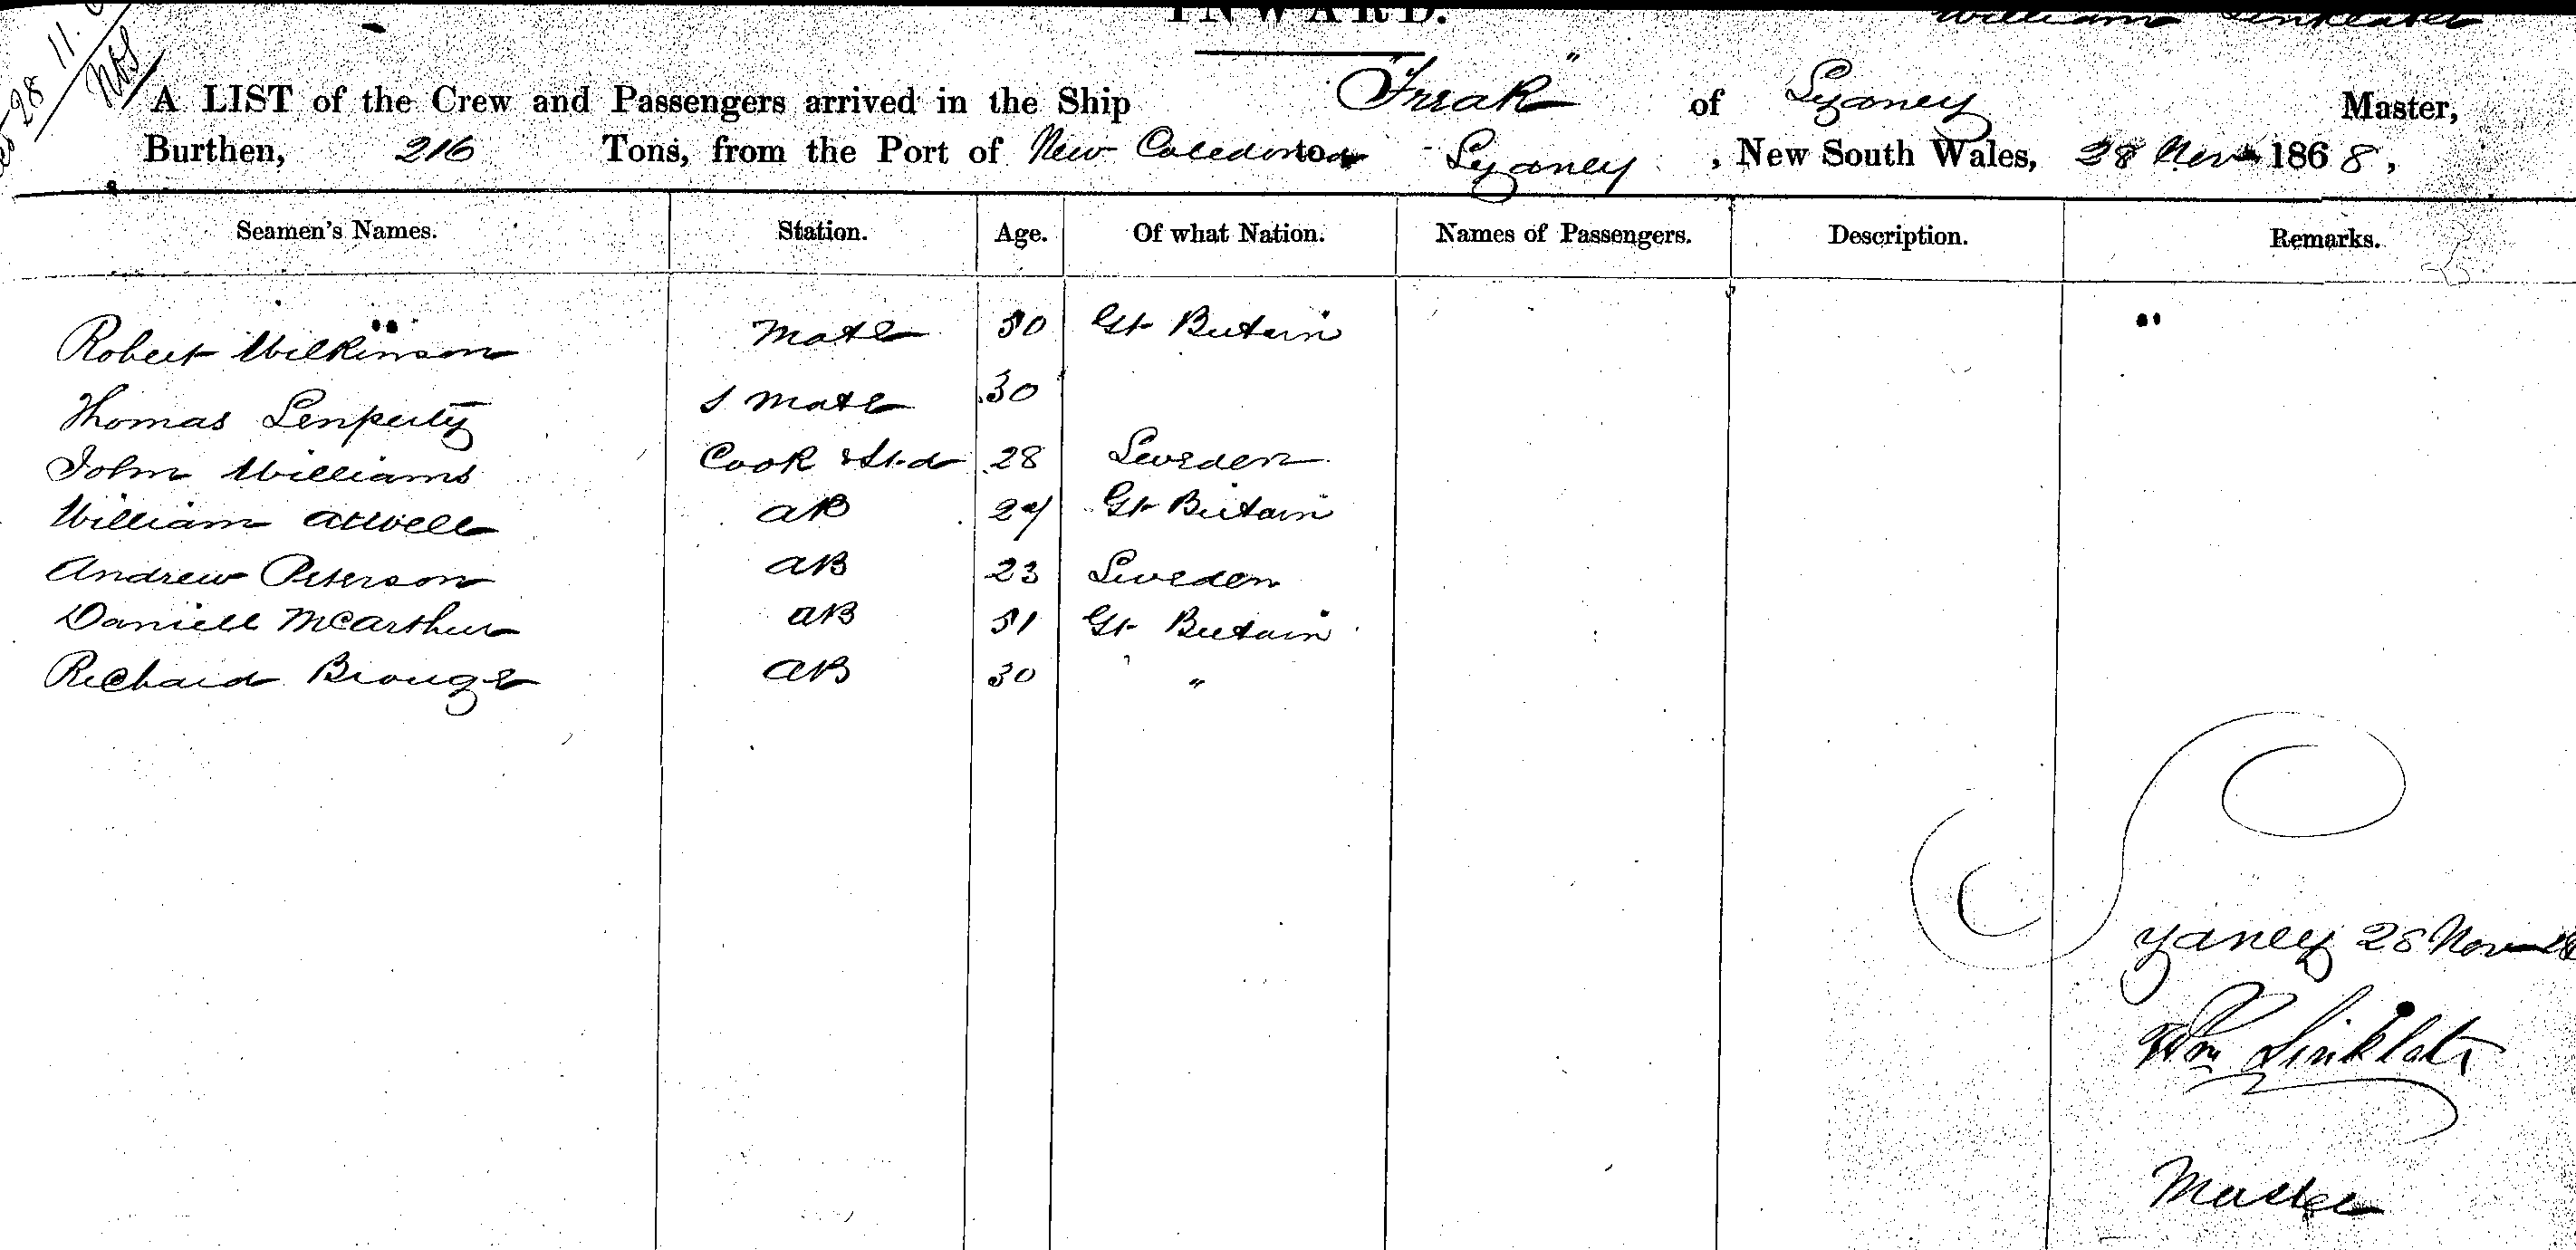 INWARD.
William Sinklater
28 11
A LIST of the Crew and Passengers arrived in the Ship "Freak" of Sydney Master,
Burthen, 216 Tons, from the Port of New Caledonia to Sydney, New South Wales, 28 Nov 1868,
Seamen's Names. Station. Age. Of what Nation. Names of Passengers. Description. Remarks.
Robert Wilkinson Mate 50 Gt Britain
Thomas S Mate 30
John Williams Cook & Std 28 Sweden
William Atwell AB 24 Gt Britain
Andrew Peterson AB 23 Sweden
Daniell McArthur AB 51 Gt Britain
Richard AB 30 "
Sydney 28 Nov
Wm Sinklater
Master